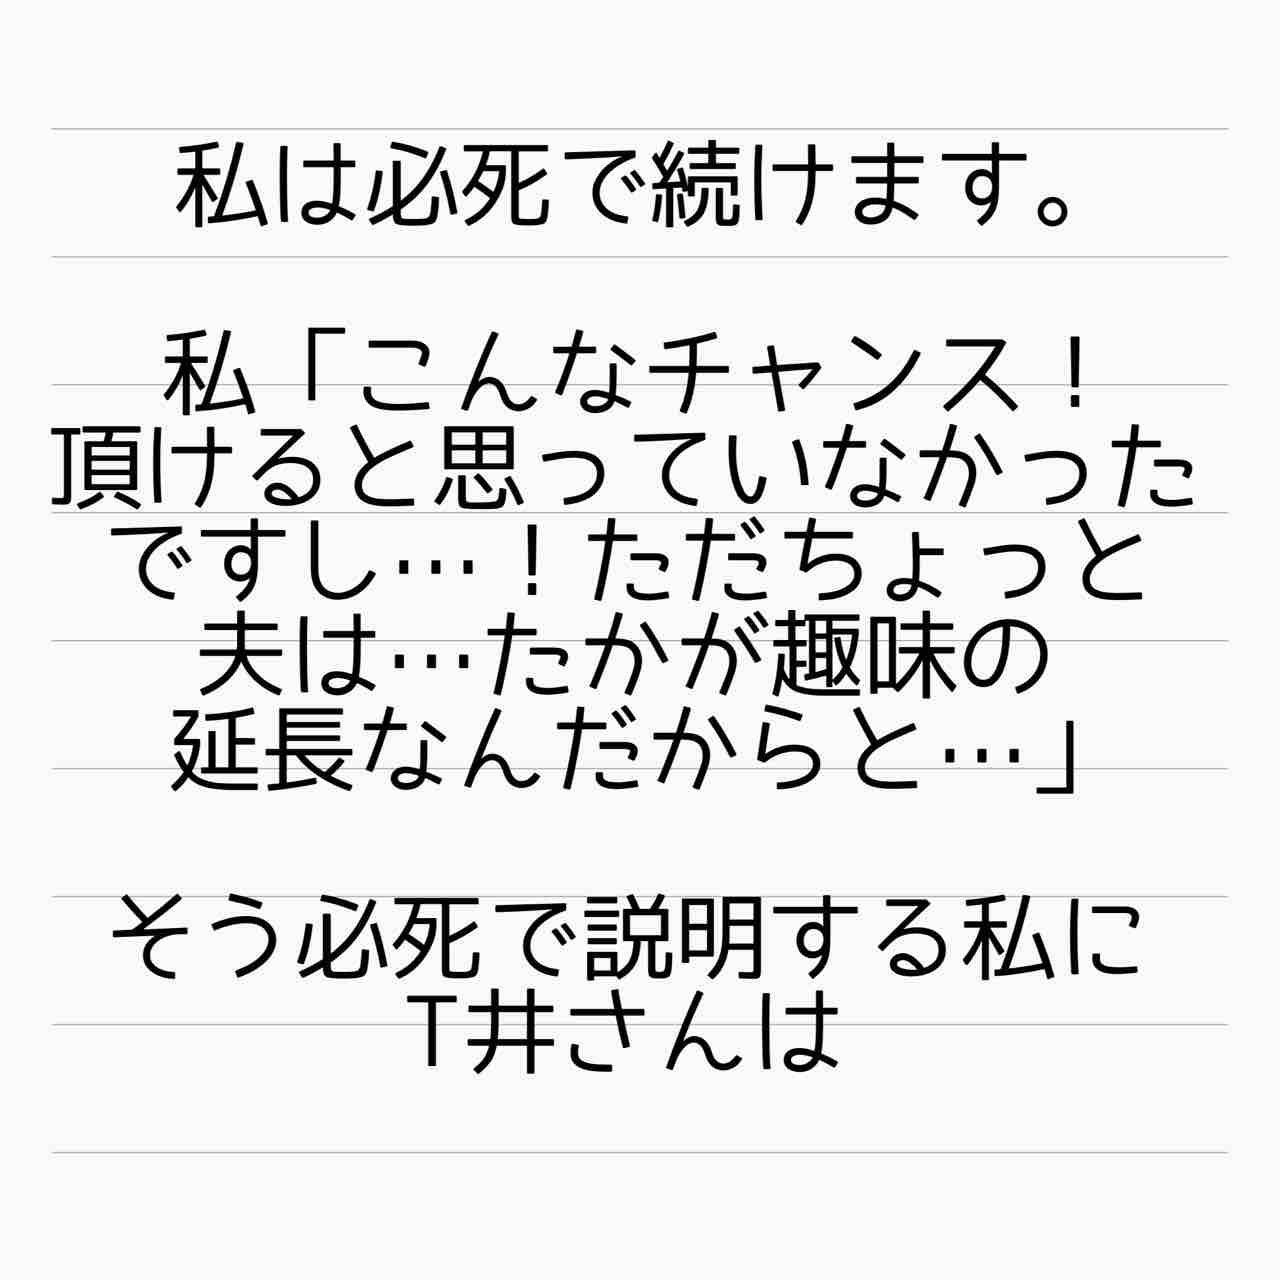 私は必死で続けます。
私「こんなチャンス！
頂けると思っていなかった
ですし…！ただちょっと
夫は…たかが趣味の
延長なんだからと…」
そう必死で説明する私に
T井さんは